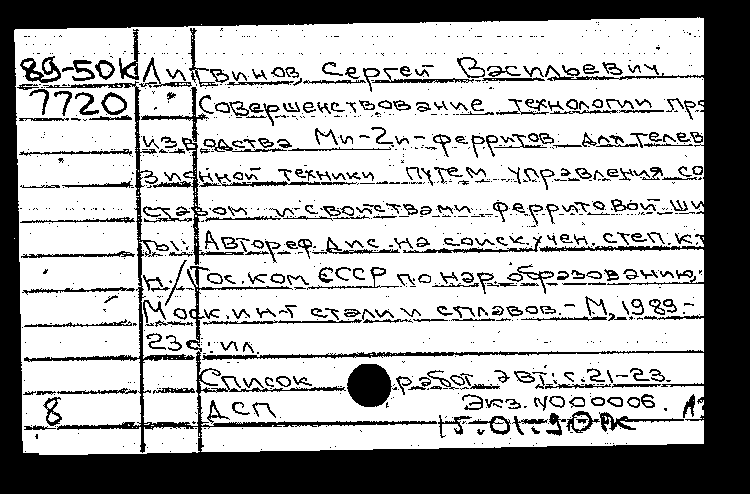 89-50К Литвинов, Сергей Васильевич.
7720 Совершенствование технологии про
изводства Mn-Zn-ферритов для телев
зионной техники путем управления со
ставом и свойствами ферритовой ши
ты: Автореф. дис. на соиск. учен. степ. к.т
н. / Гос. ком СССР по нар. образованию,
Моск. ин-т стали и сплавов. - М, 1989. -
23с.: ил.
Список работ авт.: с. 21-23.
8 ДСП Экз. N000006.
15.01.90